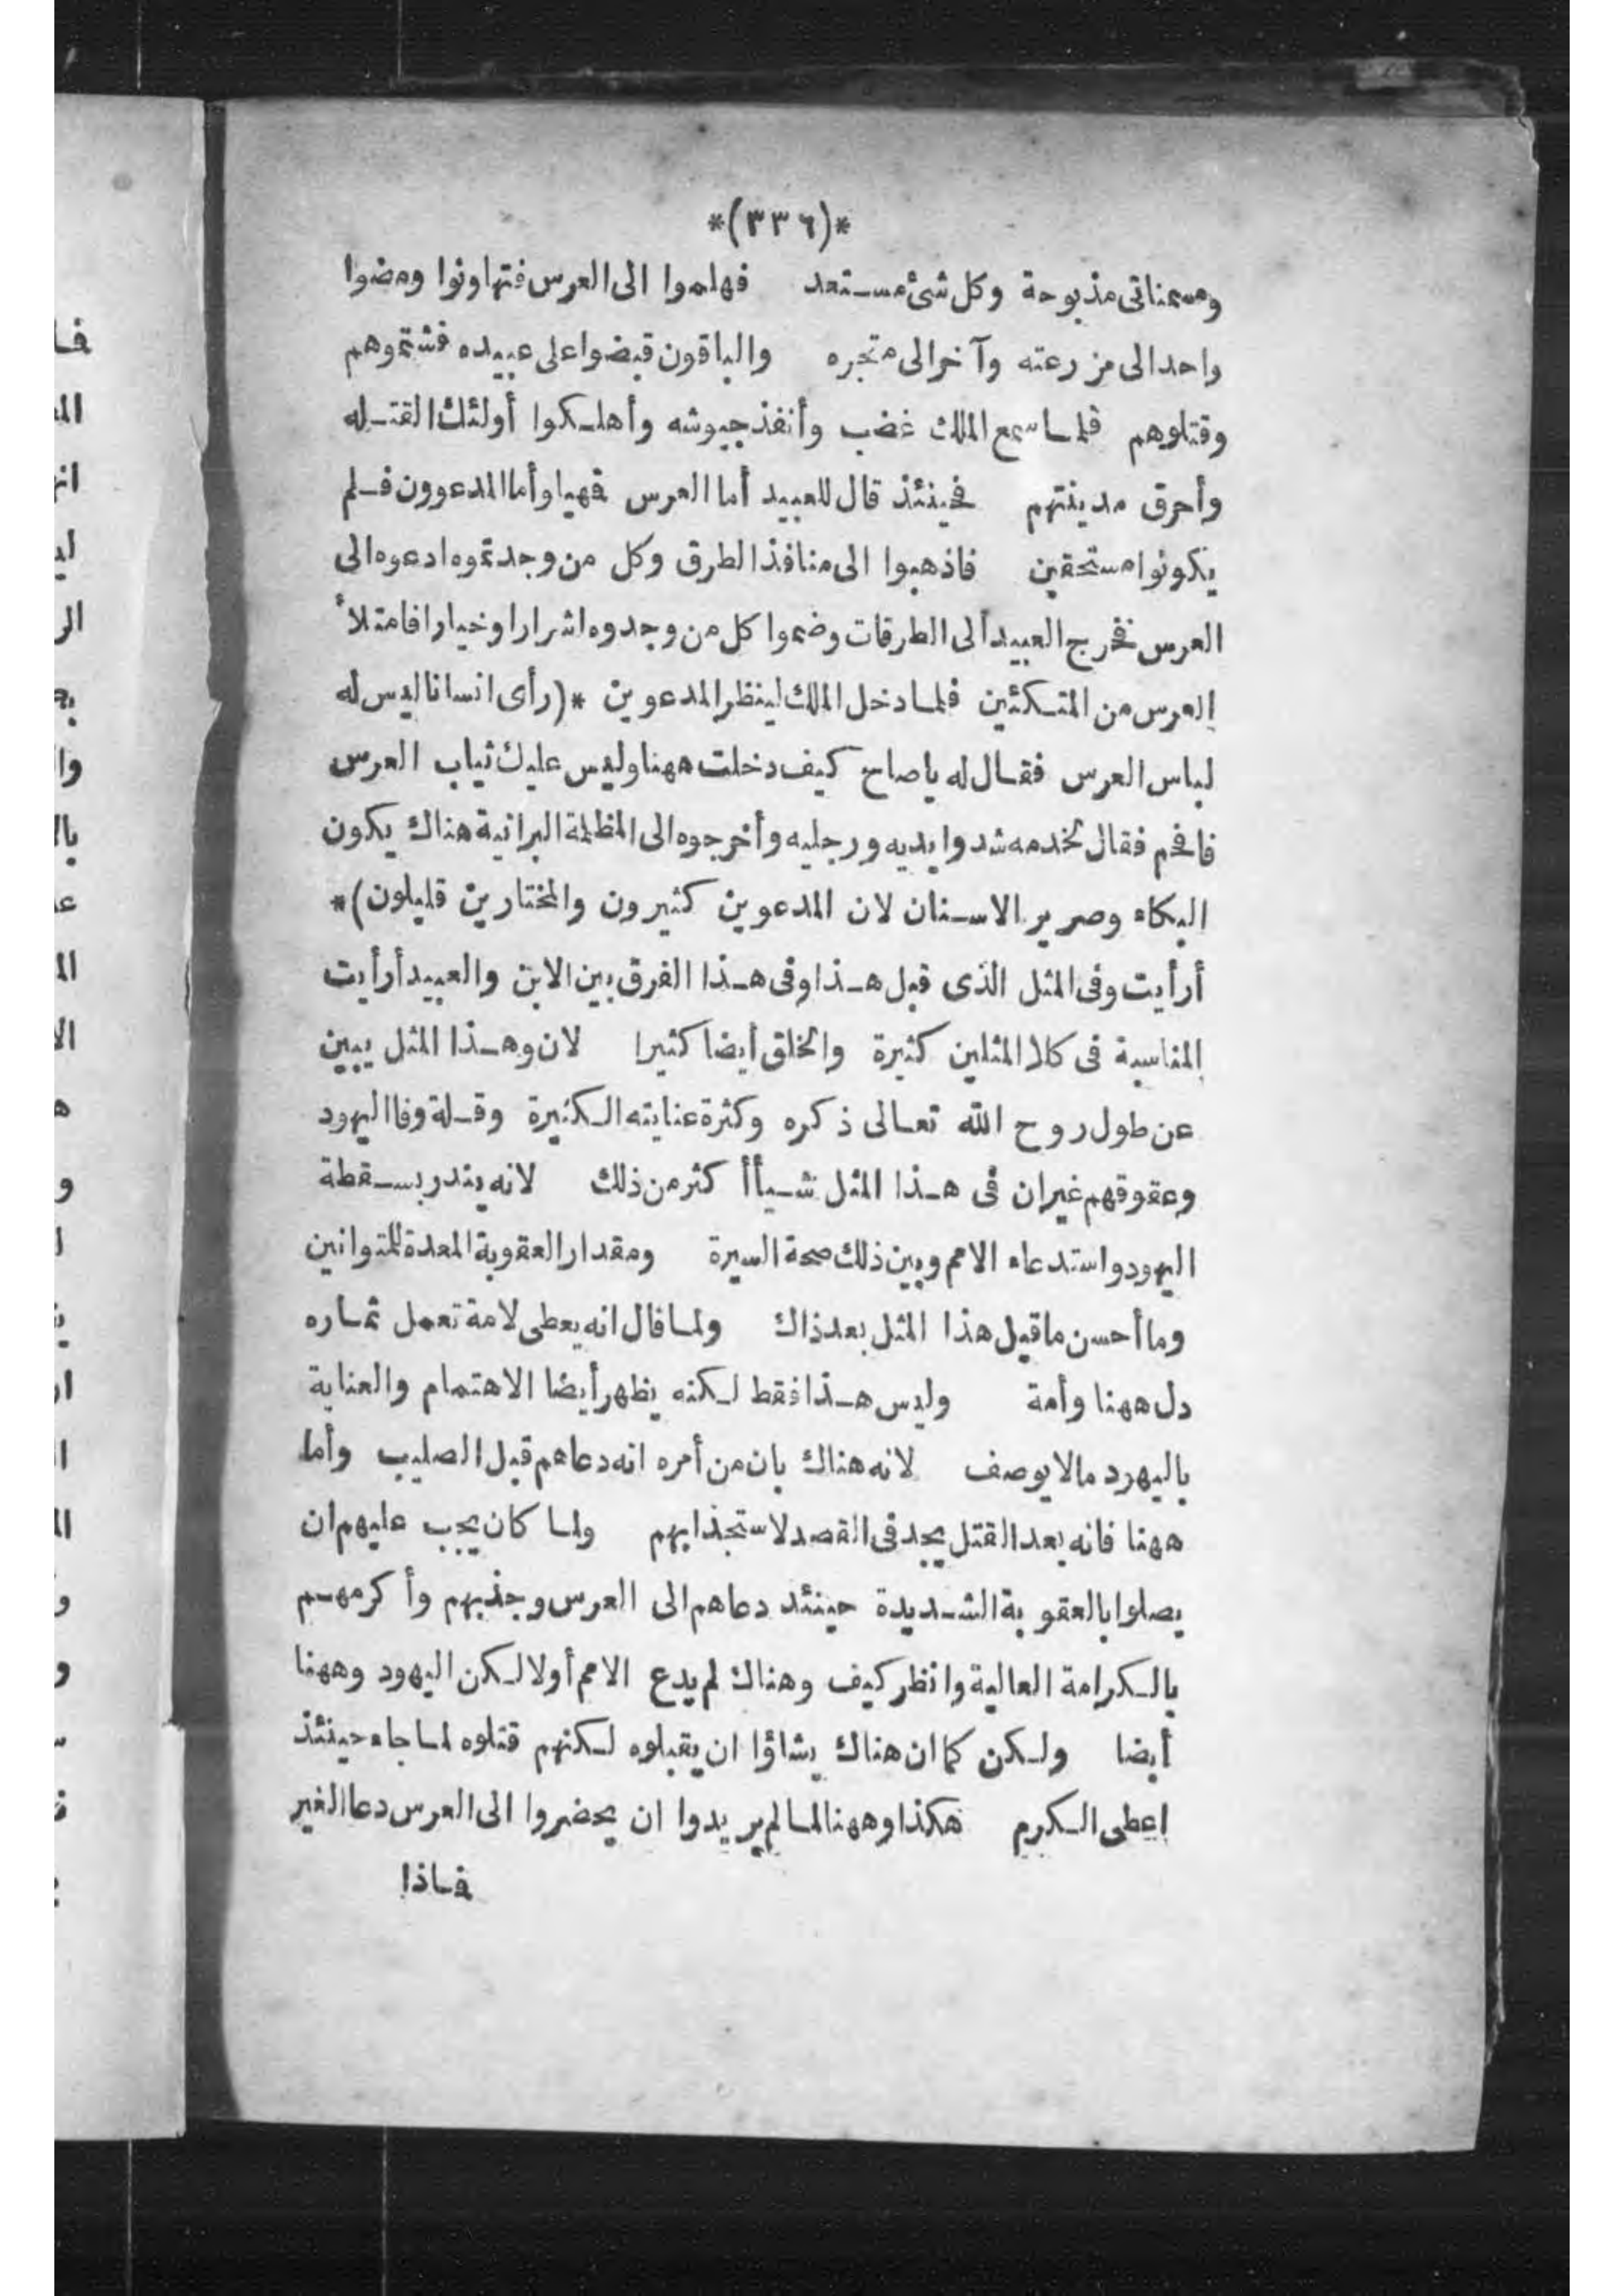 *(٣٣٦)*
ومسمناتى مذبوحة وكل شئ مستعد فهلموا الى العرس فتهاونوا ومضوا
واحد الى مزرعته وآخر الى متجره والباقون قبضوا على عبيده فشتموهم
وقتلوهم فلما سمع الملك غضب وأنفذ جيوشه وأهلكوا أولئك القتله
وأحرق مدينتهم فحينئذ قال للعبيد أما العرس فهيا وأما المدعوون فلم
يكونوا مستحقين فاذهبوا الى منافذ الطرق وكل من وجدتموه ادعوه الى
العرس فخرج العبيد الى الطرقات وضموا كل من وجدوه اشرارا وخيارا فامتلأ
العرس من المتكئين فلما دخل الملك لينظر المدعوين *(رأى انسانا ليس له
لباس العرس فقال له ياصاح كيف دخلت ههنا وليس عليك ثياب العرس
فافحم فقال لخدمه شدوا يديه ورجليه وأخرجوه الى المظلمة البرانية هناك يكون
البكاء وصرير الاسنان لان المدعوين كثيرون والمختارين قليلون)*
أرأيت وفى المثل الذى قبل هذا وفى هذا الفرق بين الابن والعبيد أرأيت
المناسبة فى كلا المثلين كثيرة والخلق أيضا كثيرا لان وهذا المثل يبين
عن طول روح الله تعالى ذكره وكثرة عنايته الكثيرة وقلة وفا اليهود
وعقوقهم غيران فى هذا المثل شيأ أكثر من ذلك لانه يندر بسقطة
اليهود واستدعاء الامم وبين ذلك صحة السيرة ومقدار العقوبة المعدة للمتوانين
وما أحسن ماقيل هذا المثل بعد ذاك ولما قال انه يعطى لامة تعمل ثماره
دل ههنا وأمة وليس هذا فقط لكنه يظهر أيضا الاهتمام والعناية
باليهود مالا يوصف لانه هناك بان من أمره انه دعاهم قبل الصليب وأما
ههنا فانه بعد القتل يجد فى القصد لاستجذابهم ولما كان يجب عليهم ان
يصلوا بالعقوبة الشديدة حينئد دعاهم الى العرس وجذبهم وأكرمهم
بالكرامة العالية وانظر كيف وهناك لم يدع الامم أولا لكن اليهود وههنا
أيضا ولكن كما ان هناك يشاؤا ان يقبلوه لكنهم قتلوه لما جاء حينئذ
اعطى الكرم هكذا وههنا لما لم يريدوا ان يحضروا الى العرس دعا الغير
فاذا